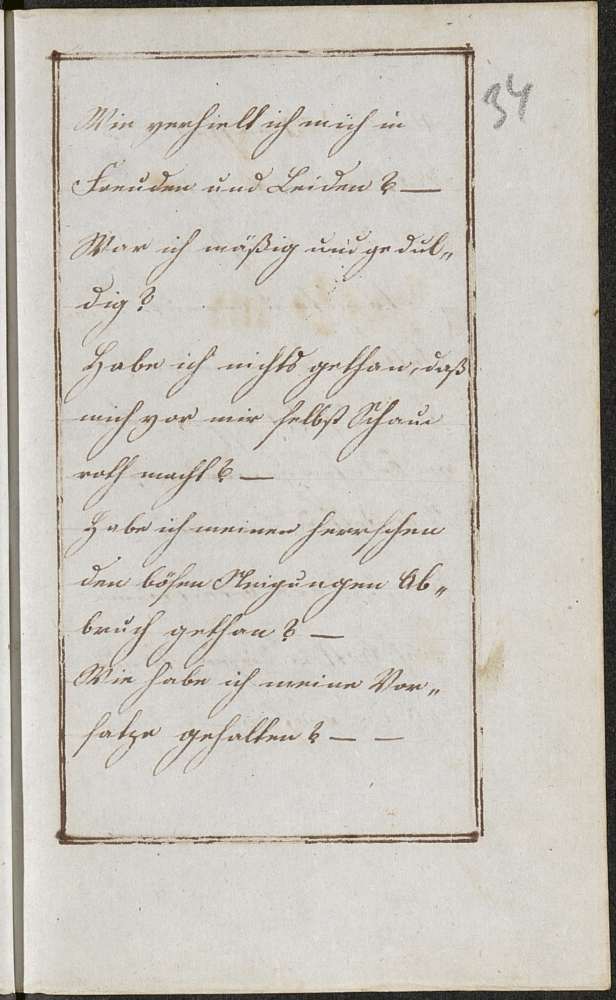 34
Wie verhielt ich mich in
Freuden und Leiden? —
War ich mäßig und gedul„
dig?
Habe ich nichts gethan, daß
mich vor mir selbst Scham
roth macht? —
Habe ich meinen herrschen
den bösen Neigungen Ab„
bruch gethan? —
Wie habe ich meine Vor„
satze gehalten? — —